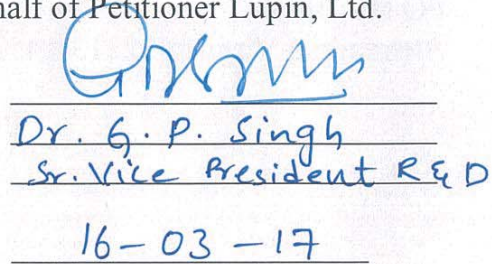 half of Petitioner Lupin, Ltd.
Dr. G. P. Singh
Sr. Vice President R & D
16-03-17